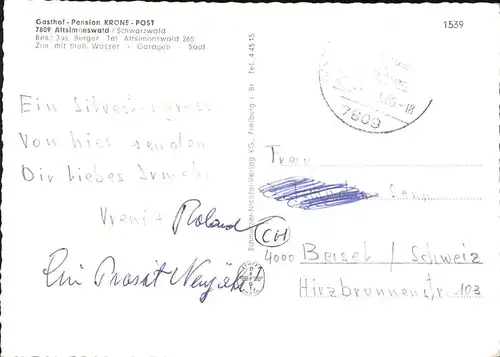 Gasthof - Pension KRONE - POST
7809 Altsimonswald / Schwarzwald
Bes.: Jos. Berger Tel. Altsimonswald 265
Zim. mit fließ. Wasser - Garagen - Saal
1539
Ein Silvestergruss
Von hier senden
Dir liebes
Vreni + Roland
Ein Prosit Neujahr!
Freiburg i. Br. Tel. 4 45 15
7809
Frau
CH
4000 Basel / Schweiz
Hirzbrunnenstr. 103